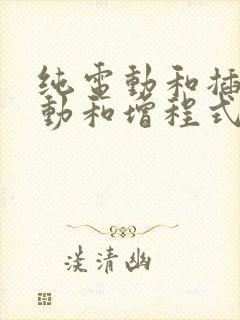 纯電動和插
動和增程式
淡清幽